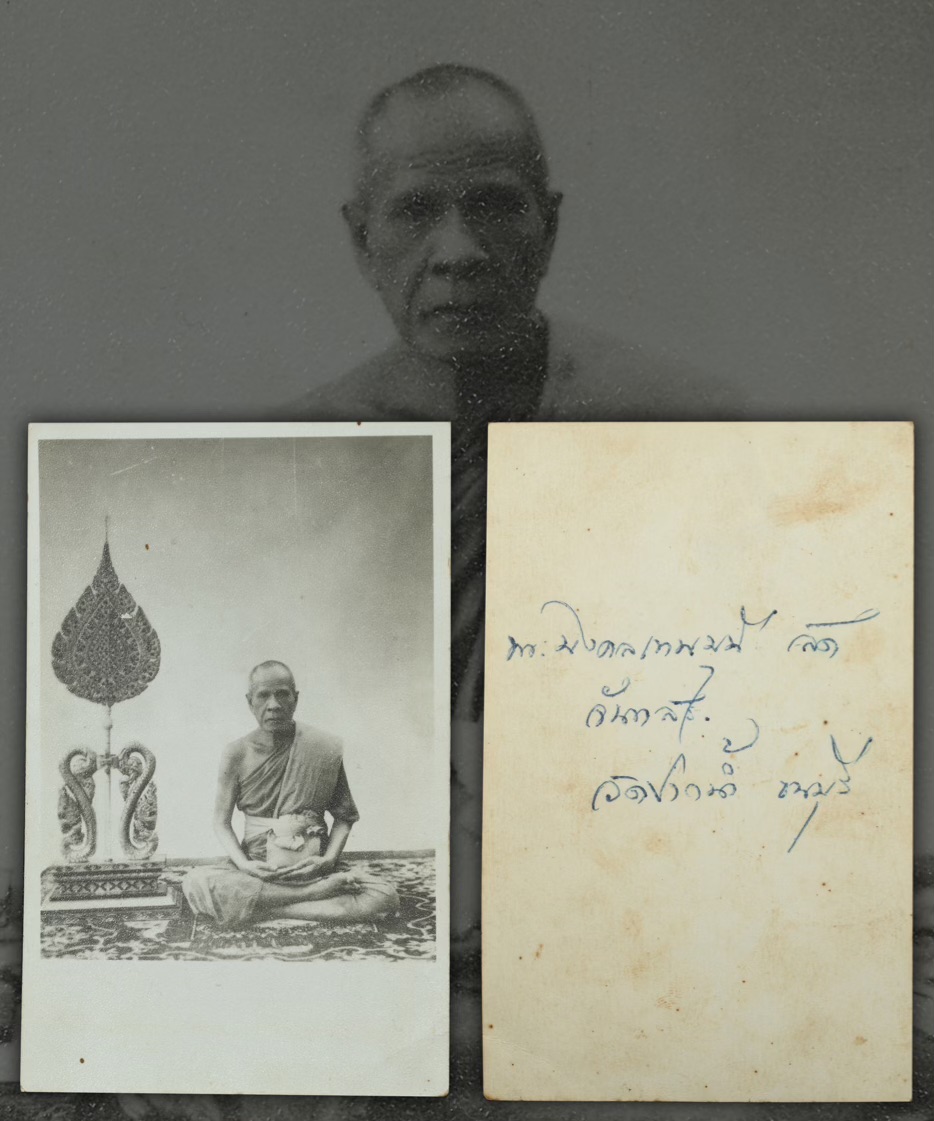 พระมงคลเทพมุนี สด
จันทสโร.
วัดปากน้ำ ธนบุรี